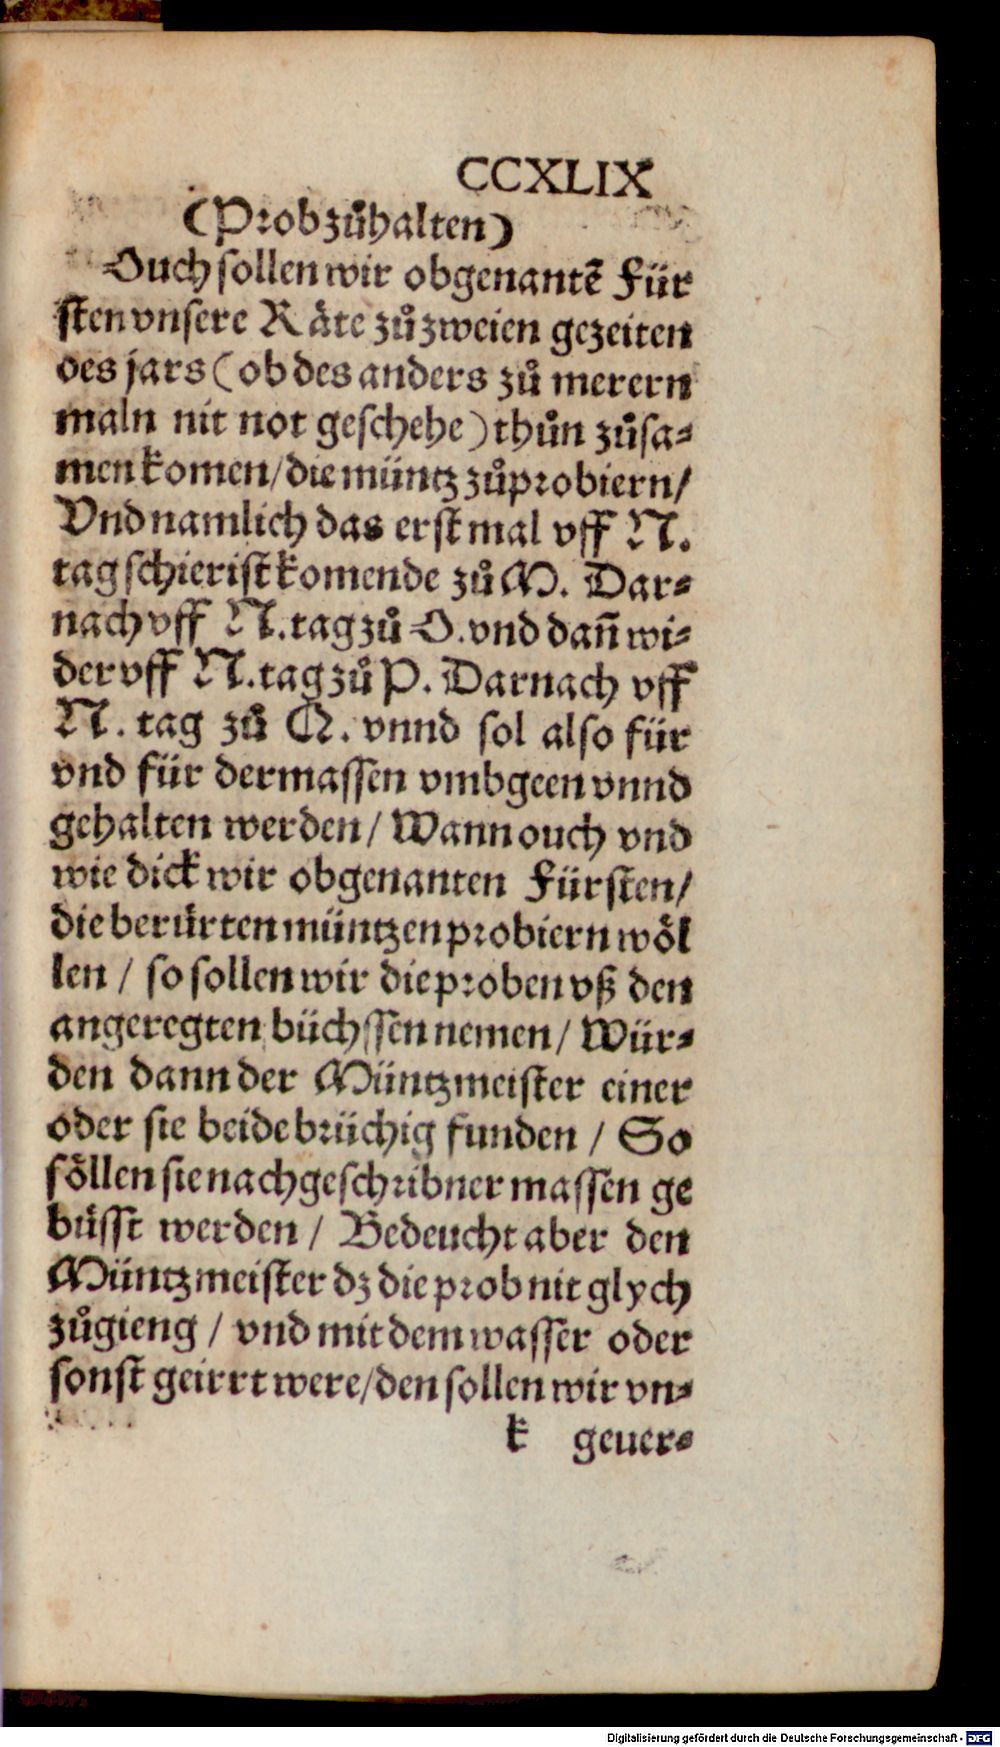 CCXLIX
(Prob zůhalten)
Ouch sollen wir obgenantē Für
sten vnsere Räte zů zweien gezeiten
des jars (ob des anders zů merern
maln nit not geschehe) thůn zůsa⸗
men komen / die müntz zůprobiern /
Vnd namlich das erst mal vff N.
tag schierist komende zů M. Dar⸗
nach vff N. tag zů O. vnd dañ wi⸗
der vff N. tag zů P. Darnach vff
N. tag zů Q. vnnd sol also für
vnd für dermassen vmbgeen vnnd
gehalten werden / Wann ouch vnd
wie dick wir obgenanten Fürsten /
die berürten müntzen probiern wöl
len / so sollen wir die proben vß den
angeregten büchssen nemen / Wür⸗
den dann der Müntzmeister einer
oder sie beide brüchig funden / So
söllen sie nachgeschribner massen ge
büsst werden / Bedeucht aber den
Müntzmeister dz die prob nit glych
zůgieng / vnd mit dem wasser oder
sonst geirrt were / den sollen wir vn⸗
k geuer⸗
Digitalisierung gefördert durch die Deutsche Forschungsgemeinschaft - DFG